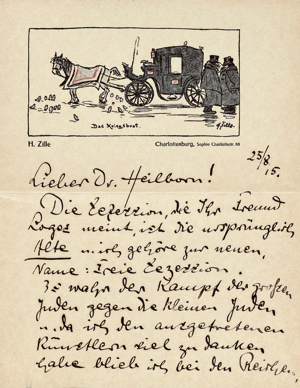 Das Kriegsbrot.
H. Zille.
H. Zille
Charlottenburg, Sophie Charlottestr. 88
25/8
15.
Lieber Dr. Heilborn!
Die Sezession, die Ihr Freund
meint, ist die ursprünglich
Alte u. ich gehöre zur neuen,
Name: Freie Sezession.
Es wahr der Kampf der großen
Juden gegen die kleinen Juden
u. da ich den ausgetretenen
Künstlern viel zu danken
habe blieb ich bei den Reichen